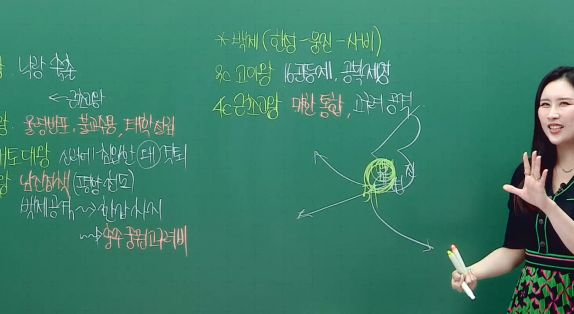 낙랑 축출
← 근초고왕
왕 율령반포, 불교수용, 태학설립
개토대왕 신라에 침입한 왜 격퇴
왕 남진정책 (평양천도)
백제공격 ~> 한강 차지
~> 충주 중원고구려비
* 백제 (한성 - 웅진 - 사비)
3c 고이왕 16관등제, 공복제정
4c 근초고왕 마한 통합, 고구려 공격